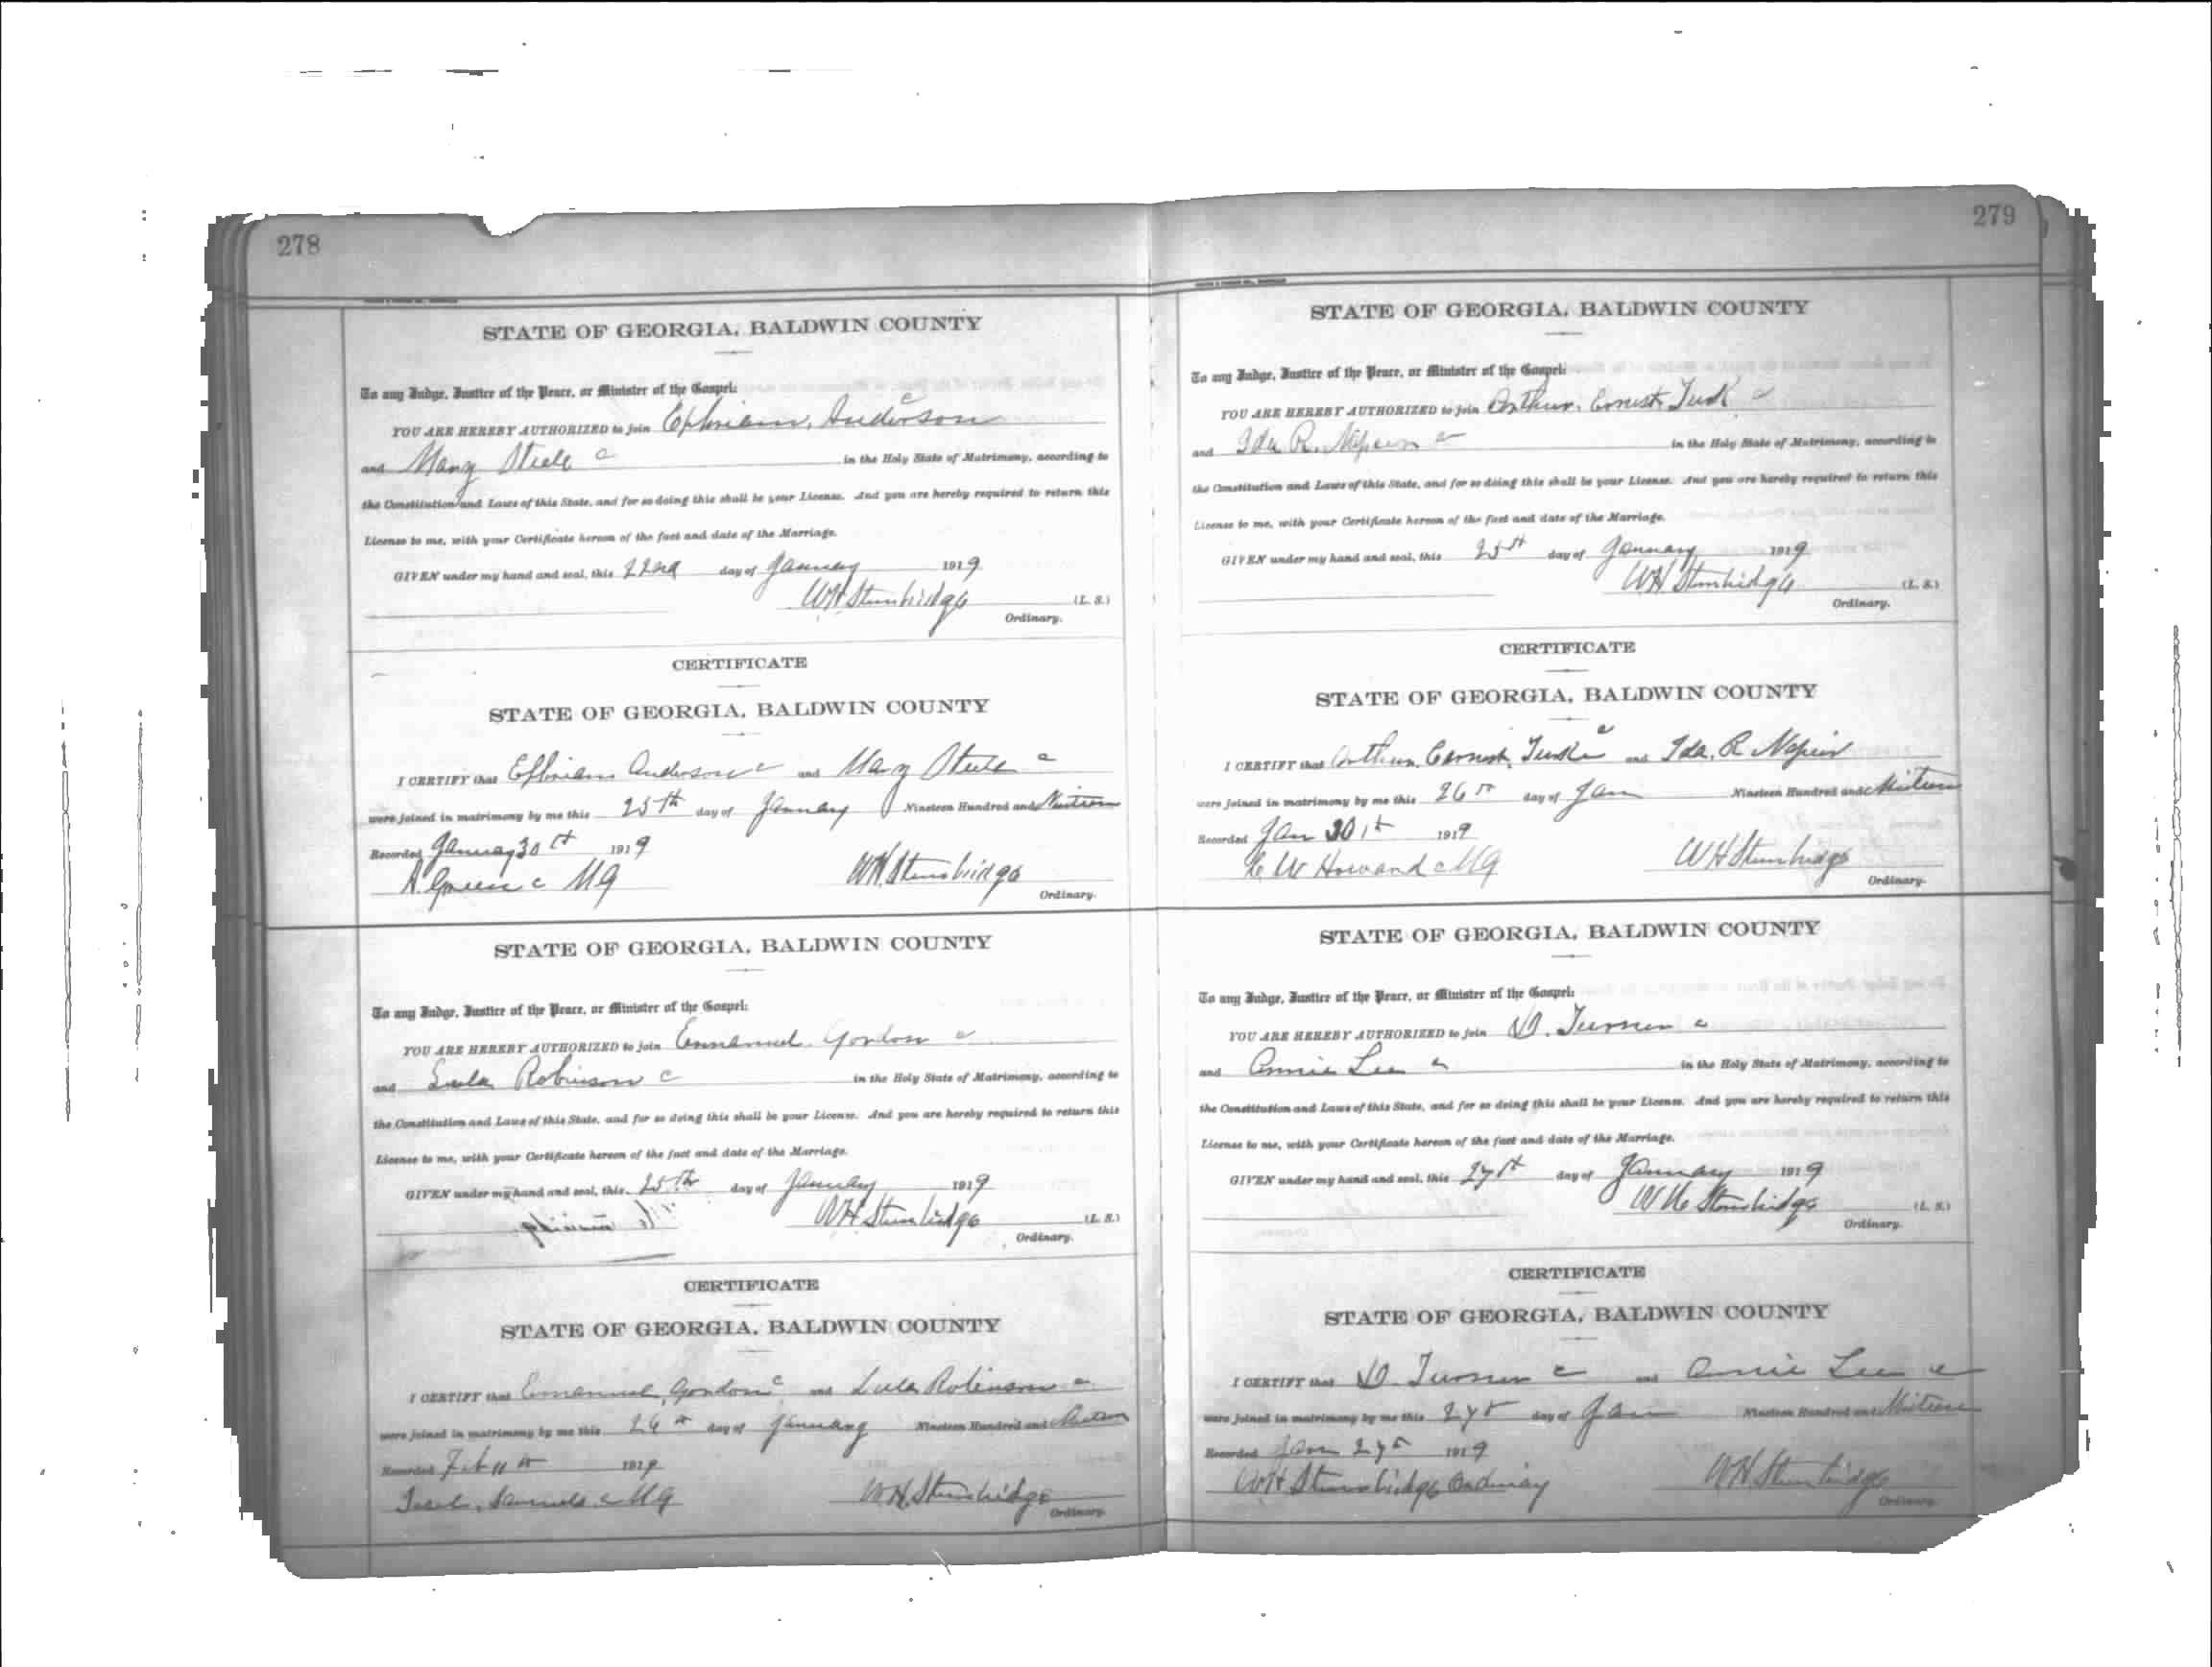 278
STATE OF GEORGIA, BALDWIN COUNTY
To any Judge, Justice of the Peace, or Minister of the Gospel:
YOU ARE HEREBY AUTHORIZED to join Ephriam Anderson c
and Mary Steele c in the Holy State of Matrimony, according to
the Constitution and Laws of this State, and for so doing this shall be your License. And you are hereby required to return this
License to me, with your Certificate hereon of the fact and date of the Marriage.
GIVEN under my hand and seal, this 22nd day of January 1919
WH Stembridge (L. S.)
Ordinary.
CERTIFICATE
STATE OF GEORGIA, BALDWIN COUNTY
I CERTIFY that Ephriam Anderson c and Mary Steele c
were joined in matrimony by me this 25th day of January Nineteen Hundred and Nineteen
Recorded January 30th 1919
A Green c MG WH Stembridge
Ordinary.
STATE OF GEORGIA, BALDWIN COUNTY
To any Judge, Justice of the Peace, or Minister of the Gospel:
YOU ARE HEREBY AUTHORIZED to join Emmanuel Gordon c
and Lula Robinson c in the Holy State of Matrimony, according to
the Constitution and Laws of this State, and for so doing this shall be your License. And you are hereby required to return this
License to me, with your Certificate hereon of the fact and date of the Marriage.
GIVEN under my hand and seal, this 25th day of January 1919
WH Stembridge (L. S.)
Ordinary.
CERTIFICATE
STATE OF GEORGIA, BALDWIN COUNTY
I CERTIFY that Emanuel Gordon c and Lula Robinson c
were joined in matrimony by me this 26th day of January Nineteen Hundred and Nineteen
Recorded Feb 11th 1919
Samuels c MG WH Stembridge
Ordinary.
279
STATE OF GEORGIA, BALDWIN COUNTY
To any Judge, Justice of the Peace, or Minister of the Gospel:
YOU ARE HEREBY AUTHORIZED to join Arthur Ernest Turk c
and Ida R. Napier c in the Holy State of Matrimony, according to
the Constitution and Laws of this State, and for so doing this shall be your License. And you are hereby required to return this
License to me, with your Certificate hereon of the fact and date of the Marriage.
GIVEN under my hand and seal, this 25th day of January 1919
WH Stembridge (L. S.)
Ordinary.
CERTIFICATE
STATE OF GEORGIA, BALDWIN COUNTY
I CERTIFY that Arthur Earnest Turk c and Ida R Napier
were joined in matrimony by me this 26th day of Jan Nineteen Hundred and Nineteen
Recorded Jan 30th 1919
W Howard c MG WH Stembridge
Ordinary.
STATE OF GEORGIA, BALDWIN COUNTY
To any Judge, Justice of the Peace, or Minister of the Gospel:
YOU ARE HEREBY AUTHORIZED to join Turner c
and Annie Lee c in the Holy State of Matrimony, according to
the Constitution and Laws of this State, and for so doing this shall be your License. And you are hereby required to return this
License to me, with your Certificate hereon of the fact and date of the Marriage.
GIVEN under my hand and seal, this 27th day of January 1919
WH Stembridge (L. S.)
Ordinary.
CERTIFICATE
STATE OF GEORGIA, BALDWIN COUNTY
I CERTIFY that Turner c and Annie Lee c
were joined in matrimony by me this 27th day of Jan Nineteen Hundred and Nineteen
Recorded Jan 27th 1919
WH Stembridge Ordinary WH Stembridge
Ordinary.